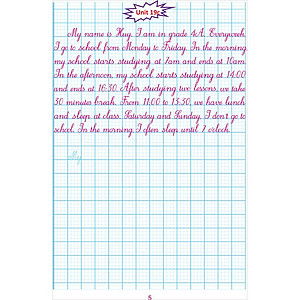 Unit 19c
My name is Huy. I am in grade 4A. Everyweek,
I go to school from Monday to Friday. In the morning,
my school starts studying at 7am and ends at 10am.
In the afternoon, my school starts studying at 14.00
and ends at 16:30. After studying two lessons, we take
30 minutes break. From 11.00 to 13:30, we have lunch
and sleep at class. Saturday and Sunday, I don't go to
school. In the morning, I often sleep until 7 o'clock.
My
5